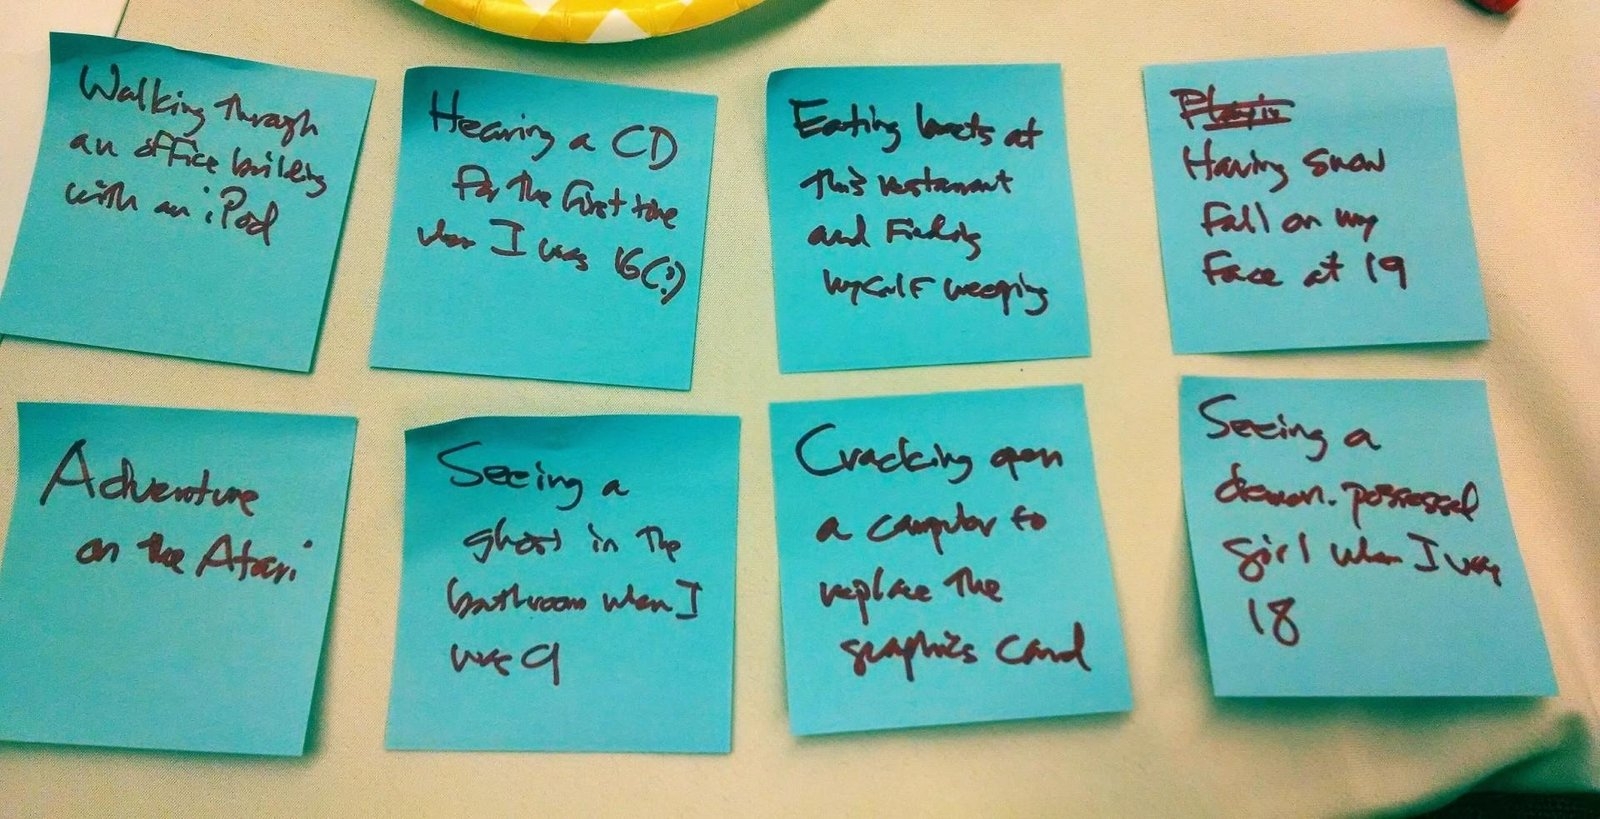 Walking through
an office building
with an iPod
Hearing a CD
for the first time
when I was 16(?)
Eating beets at
this restaurant
and finding
myself weeping
Having snow
fall on my
face at 19
Adventure
on the Atari
Seeing a
ghost in the
bathroom when I
was 9
Cracking open
a computer to
replace the
graphics card
Seeing a
demon-possessed
girl when I was
18